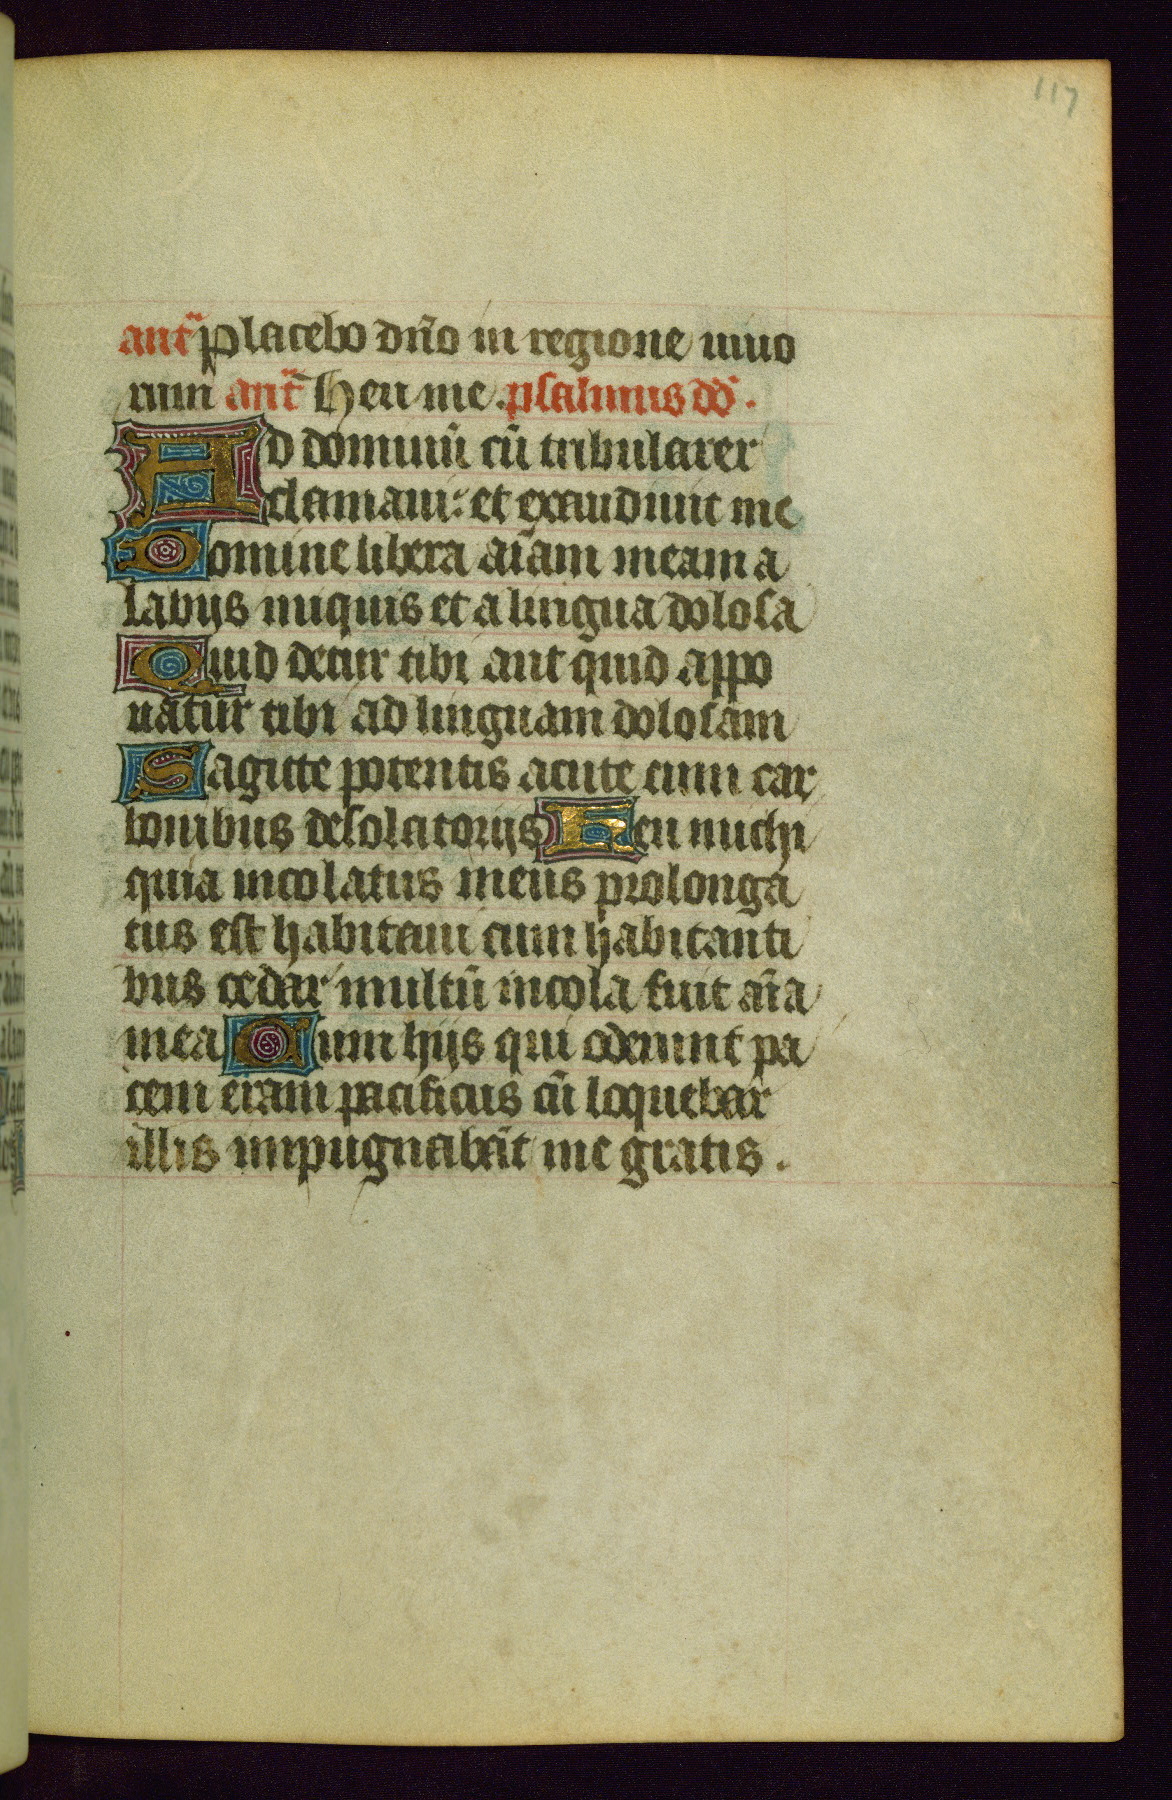 117
ant̄ Placebo dn̄o in regione uiuo
rum ant̄ Heu me. psalmus dd̄.
Ad dominū cū tribularer
clamaui: et exaudiuit me
Domine libera aīam meam a
labijs iniquis et a lingua dolosa
Quid detur tibi aut quid appo
natur tibi ad linguam dolosam
Sagitte potentis acute cum car
bonibus desolatorijs Heu michi
quia incolatus meus prolonga
tus est habitaui cum habitanti
bus cedar multū incola fuit aīa
mea Cum hijs qui oderunt pa
cem eram pacificus cū loquebar
illis impugnabāt me gratis.